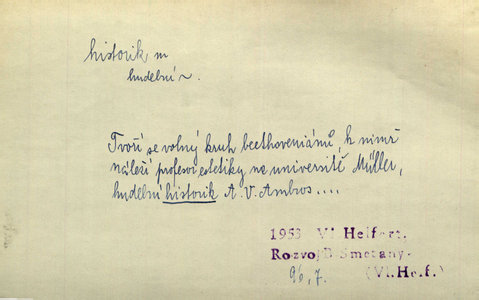 historik m
hudební ~.
Tvoří se volný kruh beethoveniánů, k nimž
náleží profesor estetiky na universitě Müller,
hudební historik A. V. Ambros....
1953 Vl Helfert.
Rozvoj B Smetany-
96, 7. (Vl.He.f.)